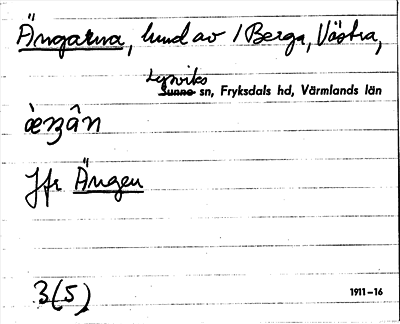 Ängarna, lund av / Berga, Västra,
Lysviks
Sunne sn, Fryksdals hd, Värmlands län
Jfr Ängen
3(5)
1911–16